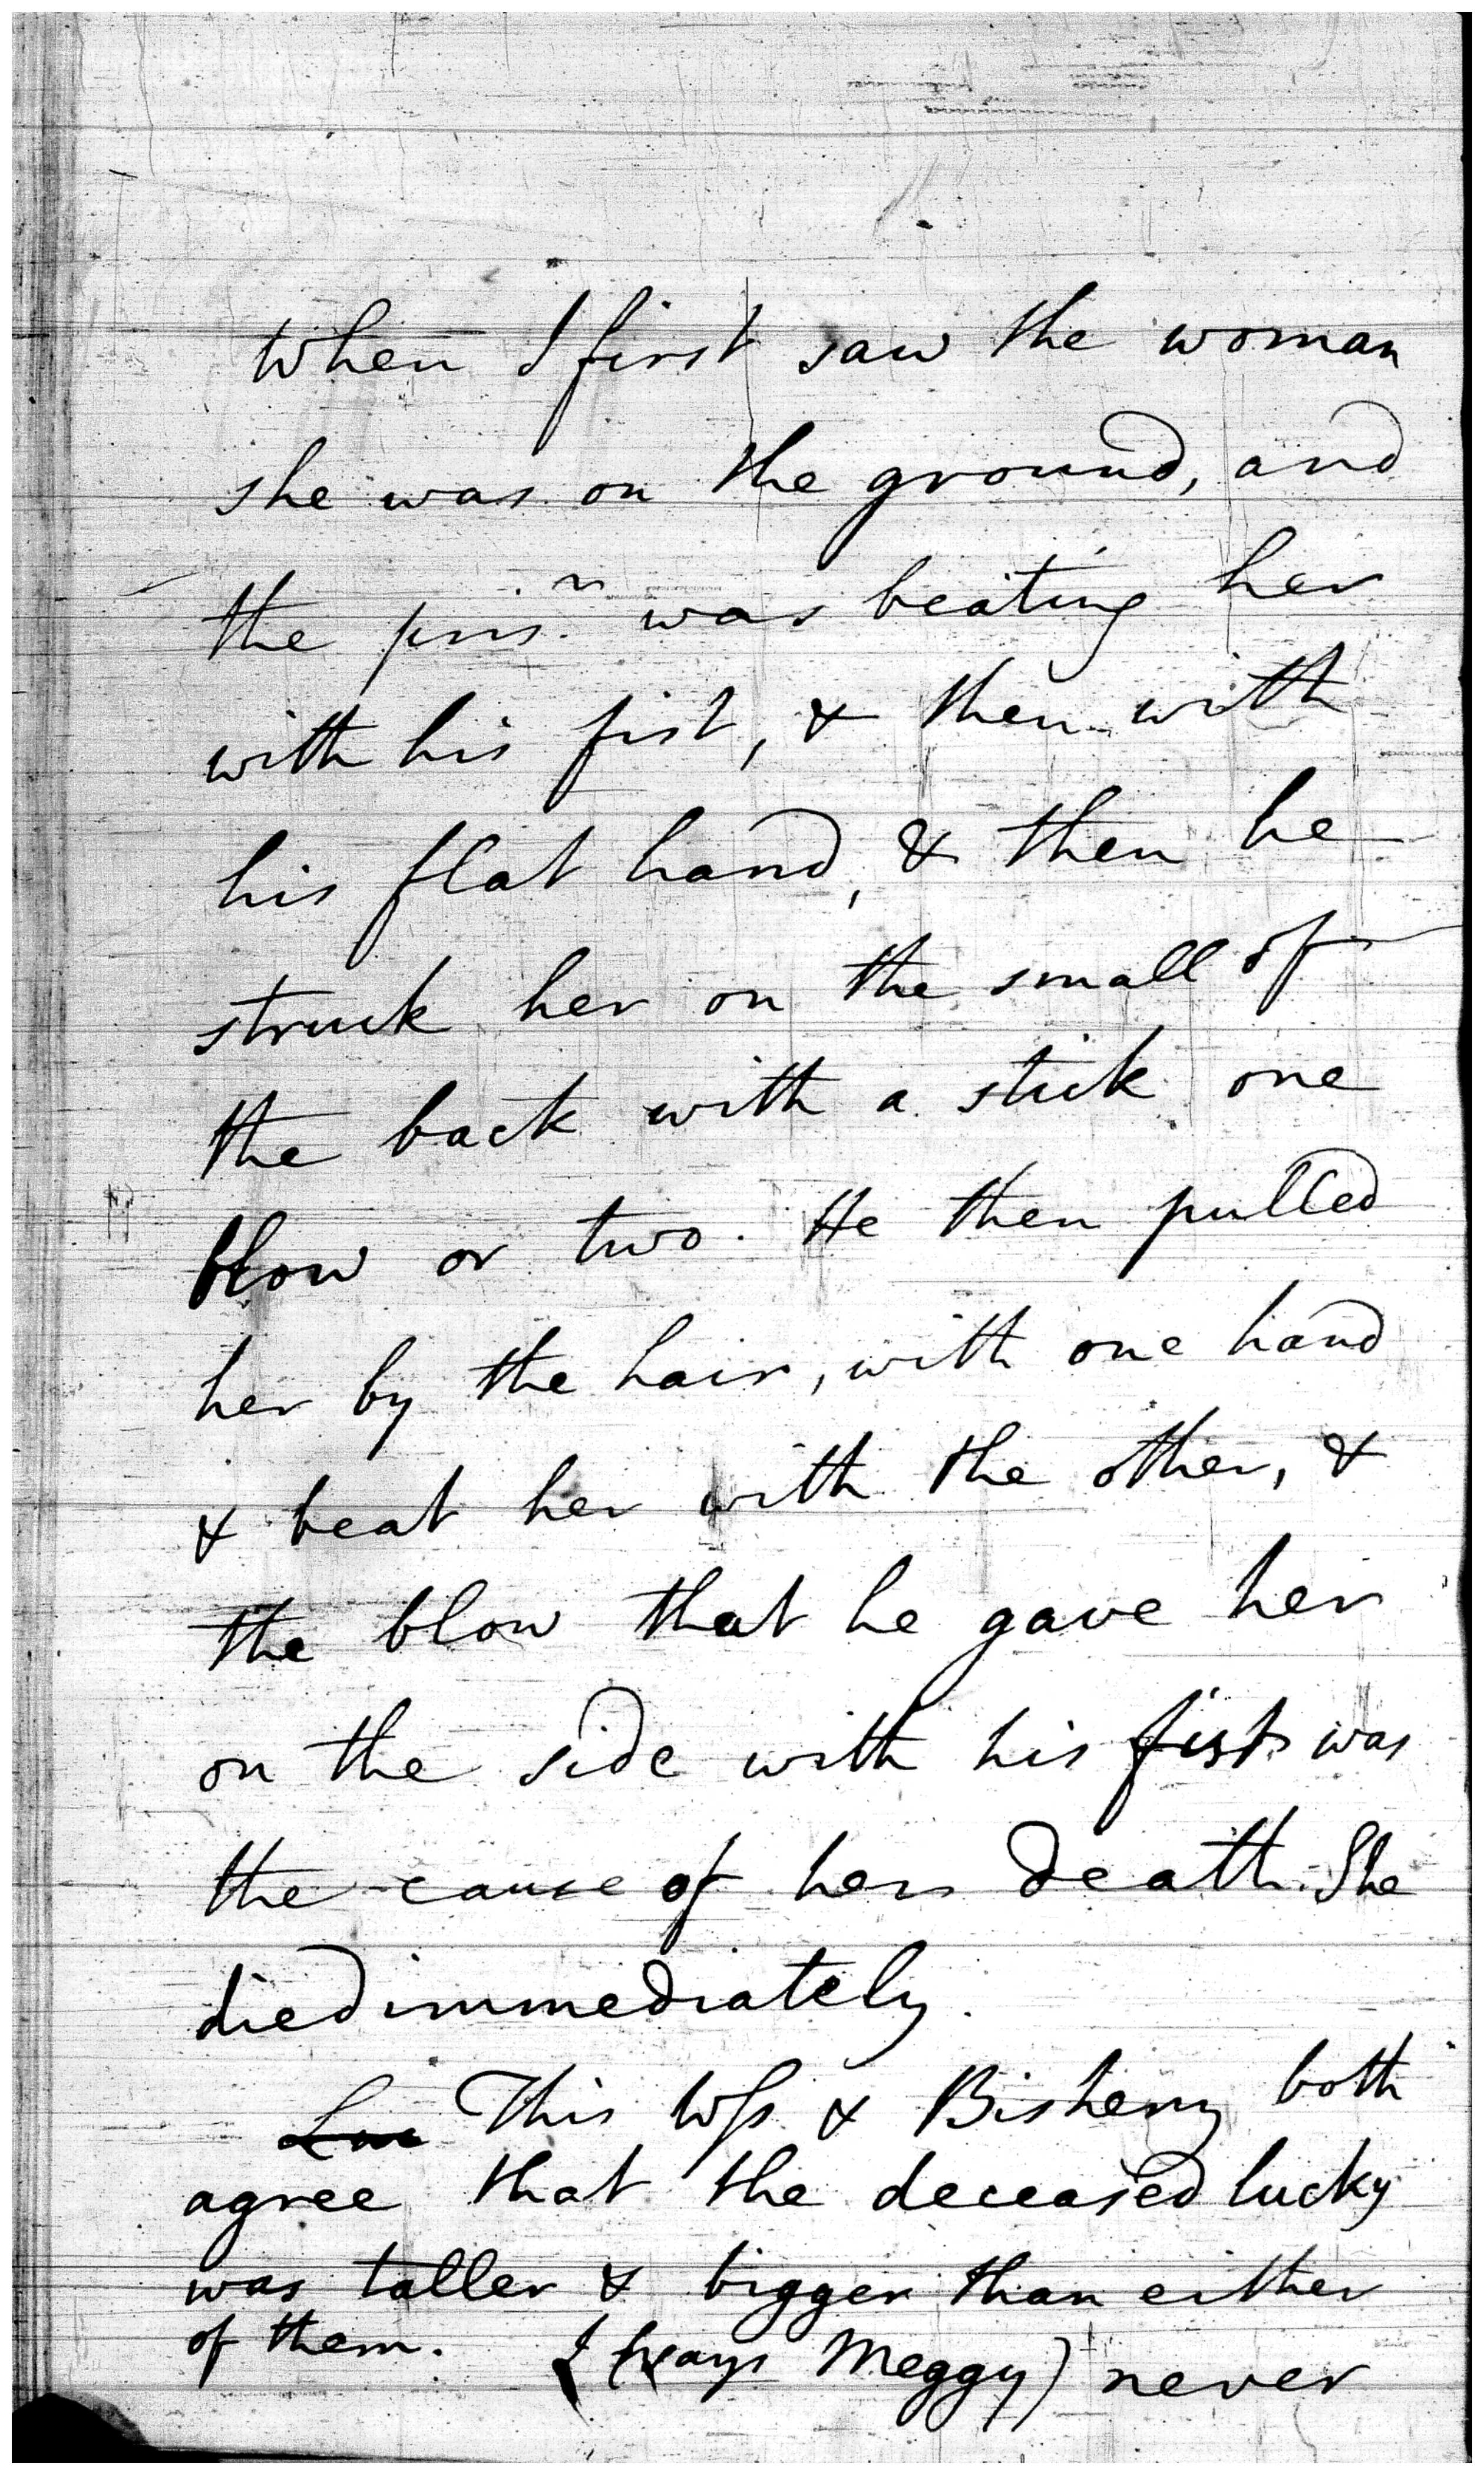 When I first saw the woman
she was on the ground, and
the pris.r was beating her
with his fist, & then with
his flat hand, & then he
struck her on the small of
the back with a stick one
blow or two. He then pulled
her by the hair, with one hand
& beat her with the other, &
the blow that he gave her
on the side with his fist was
the cause of her death. She
died immediately.
This Wss & Bisheny both
agree that the deceased lucky
was taller & bigger than either
of them. I (says Meggy) never